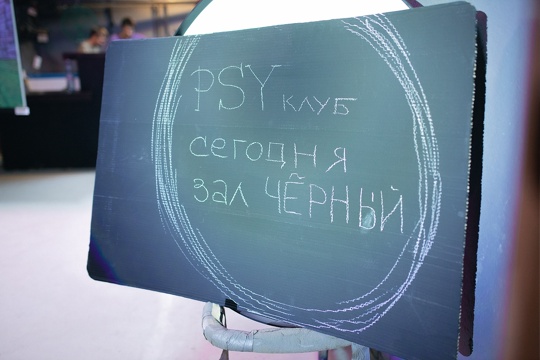 PSY клуб
сегодня
зал ЧЁРНЫЙ